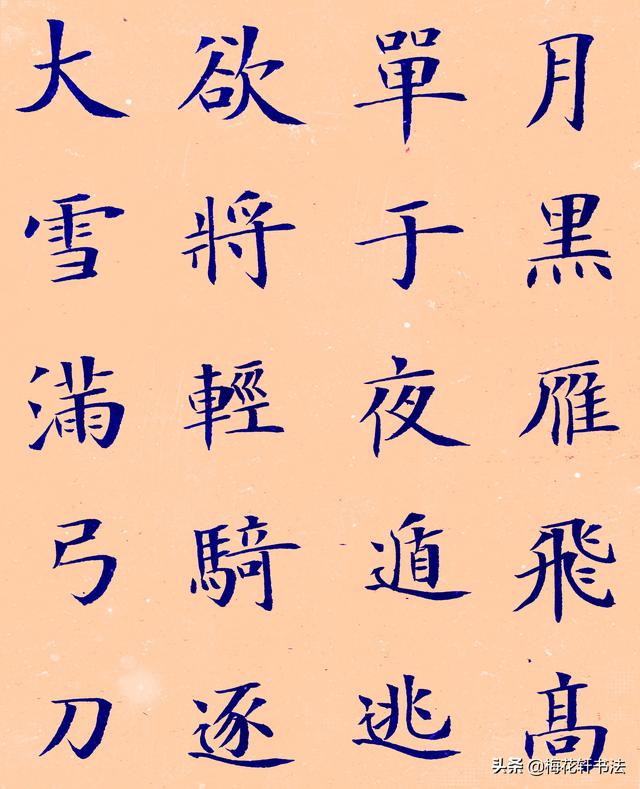 月黑雁飛髙
單于夜遁逃
欲將輕騎逐
大雪滿弓刀
头条 @梅花轩书法